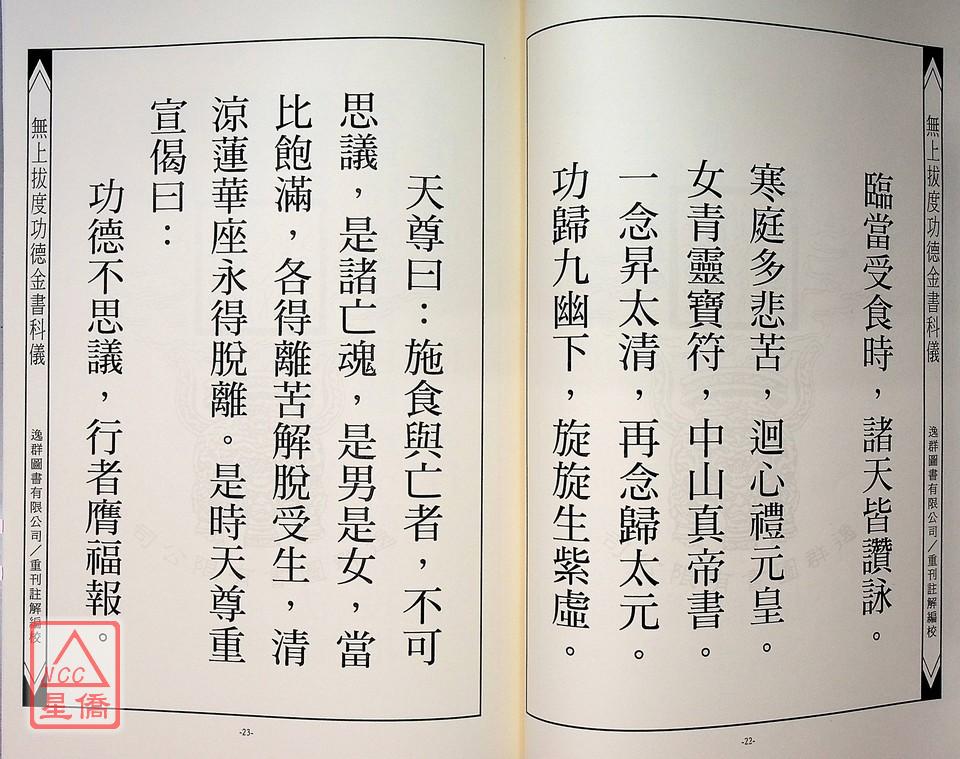 無上拔度功德金書科儀
逸群圖書有限公司／重刊註解編校
臨當受食時，諸天皆讚詠。
寒庭多悲苦，迴心禮元皇。
女青靈寶符，中山真帝書。
一念昇太清，再念歸太元。
功歸九幽下，旋旋生紫虛。
-22-
天尊曰：施食與亡者，不可
思議，是諸亡魂，是男是女，當
比飽滿，各得離苦解脫受生，清
涼蓮華座永得脫離。是時天尊重
宣偈曰：
功德不思議，行者膺福報。
無上拔度功德金書科儀
逸群圖書有限公司／重刊註解編校
-23-
NCC
星僑